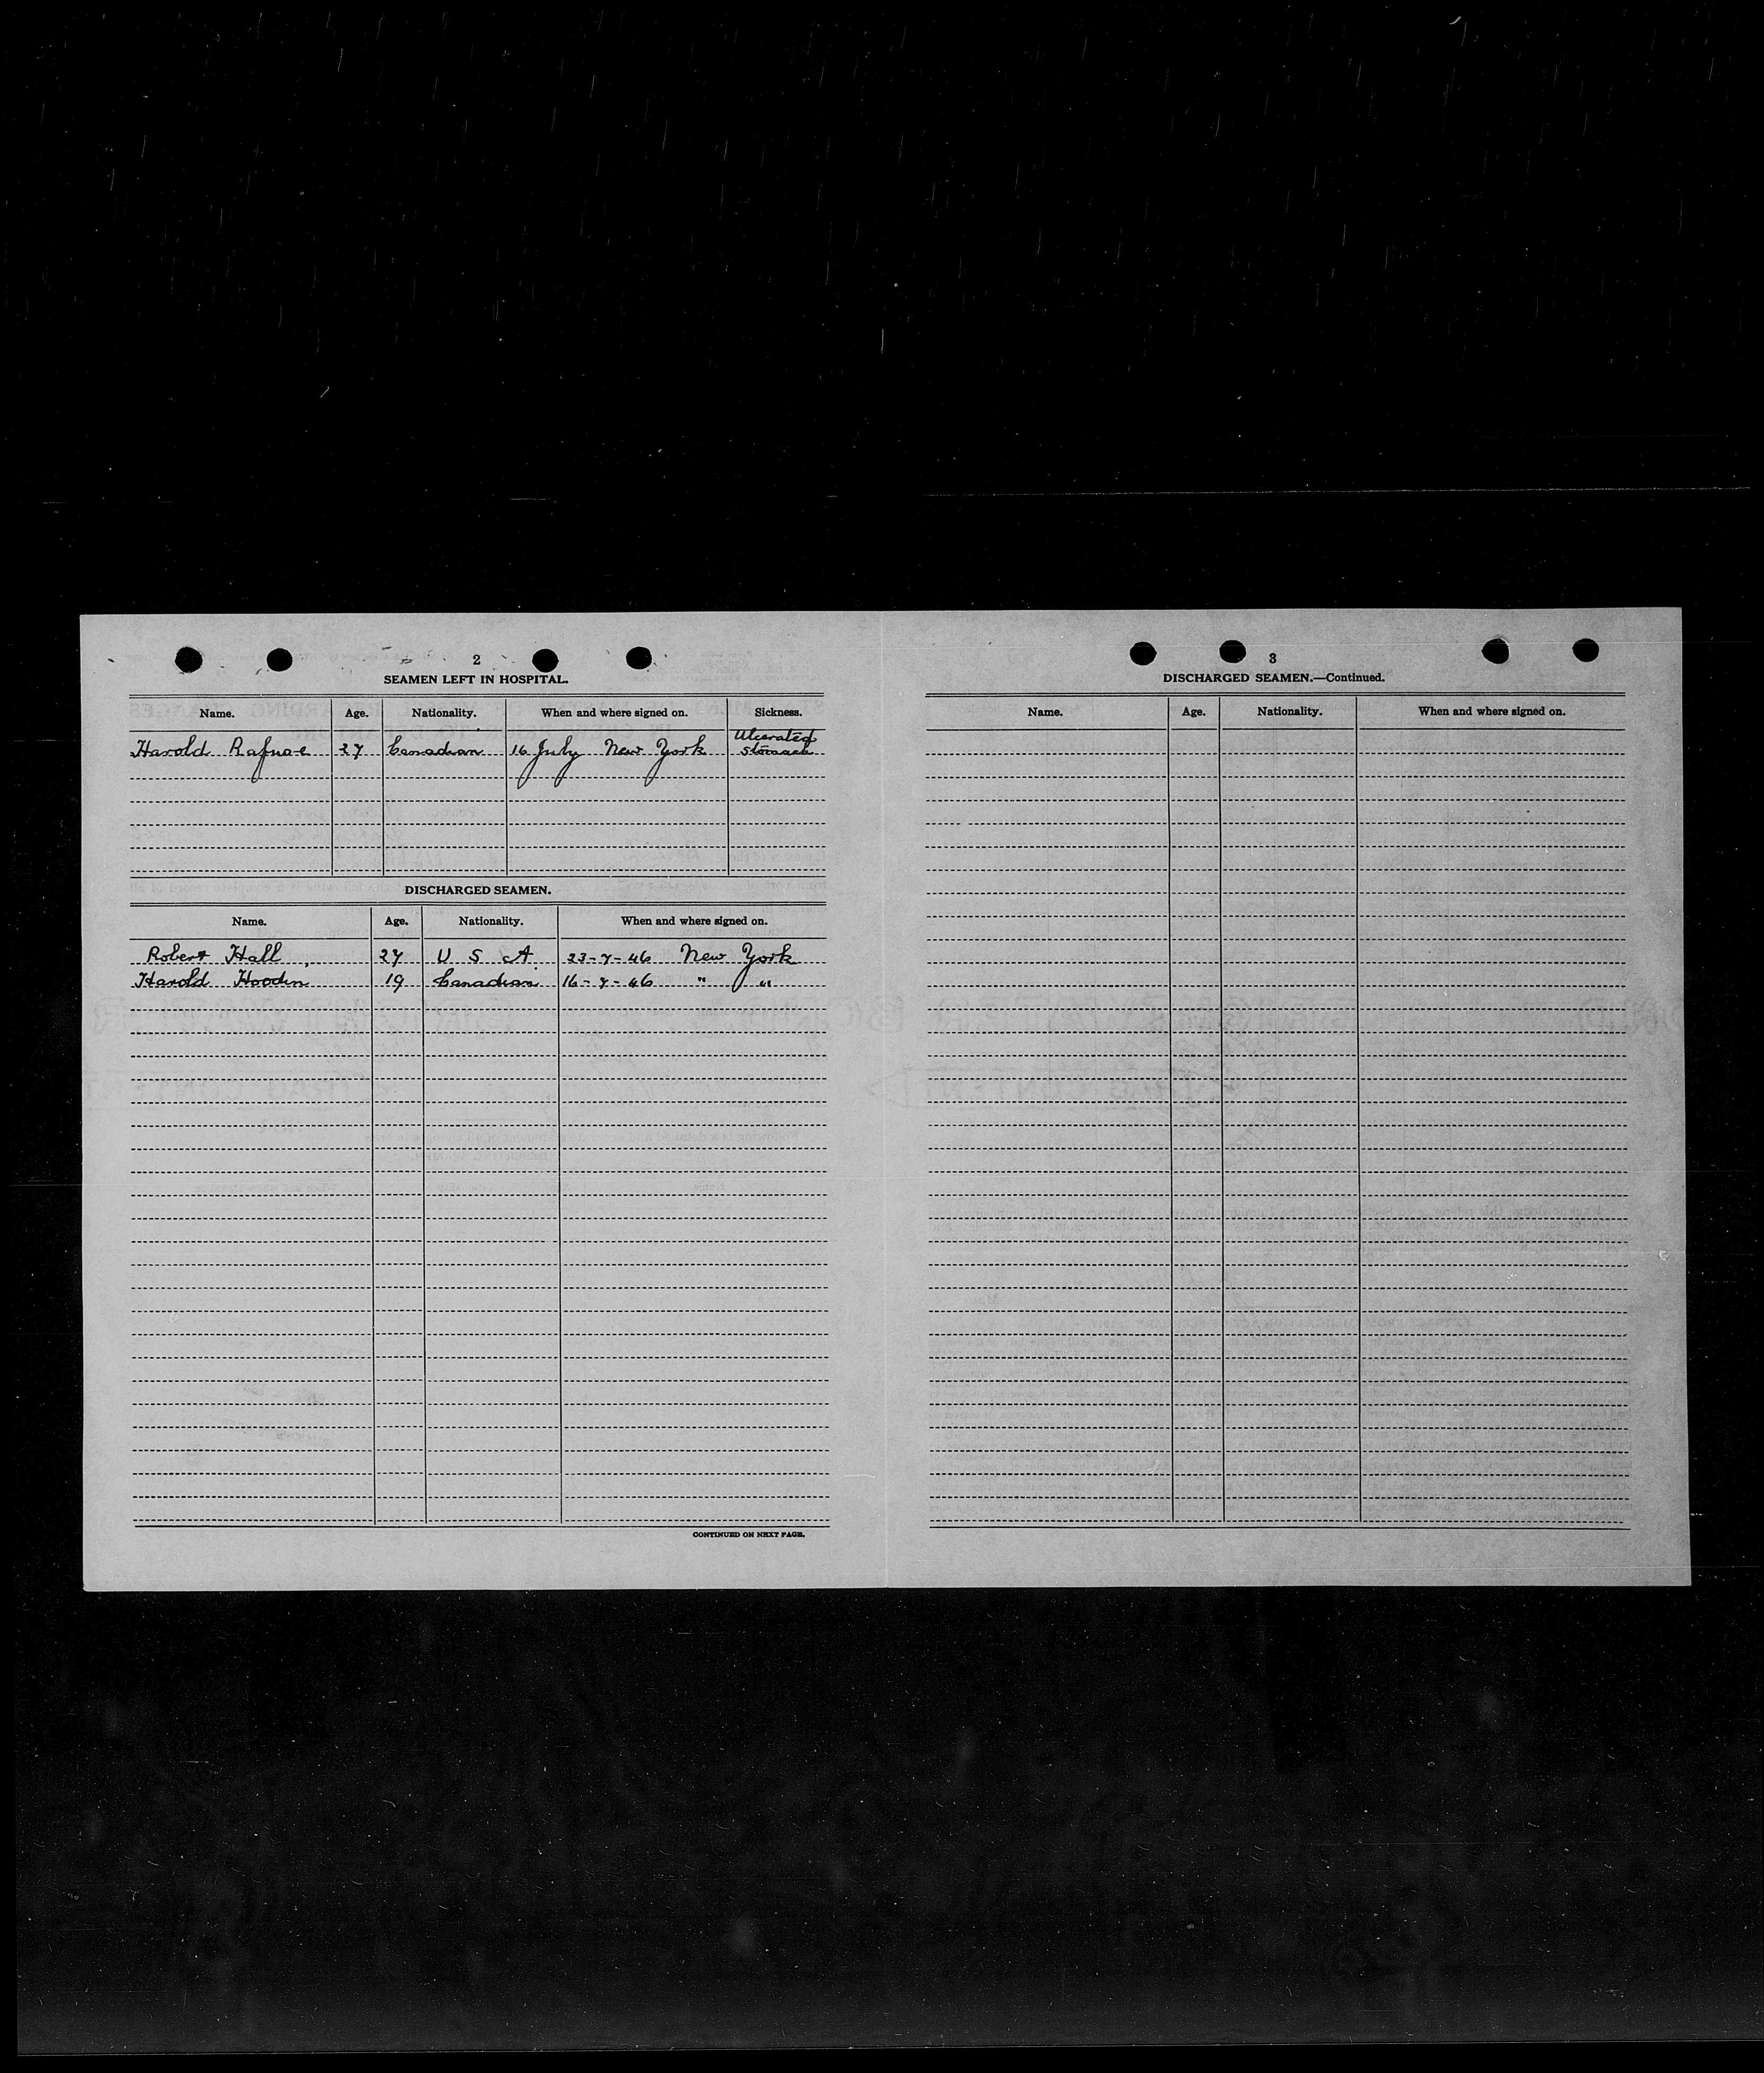 2
SEAMEN LEFT IN HOSPITAL.
Name. Age. Nationality. When and where signed on. Sickness.
Harold Rafuse 27 Canadian 16 July New York Ulcerated Stomach
DISCHARGED SEAMEN.
Name. Age. Nationality. When and where signed on.
Robert Hall 27 U S A. 23-7-46 New York
Harold Hooden 19 Canadian 16-7-46 " "
CONTINUED ON NEXT PAGE.
3
DISCHARGED SEAMEN.—Continued.
Name. Age. Nationality. When and where signed on.